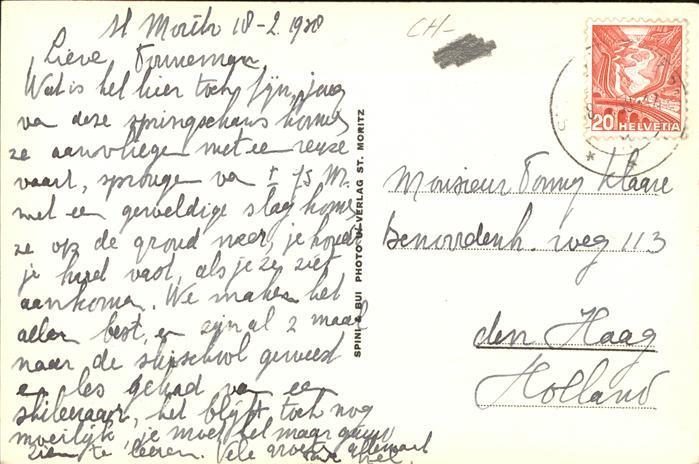 St Moritz 18-2. 1938
Lieve Tonneman
Wat is het hier toch fijn, jong
van deze springschans komen
ze aanvliegen met een reuze
vaart, sprongen van ± 75 M.
met een geweldige slag komen
ze op de grond neer, je houdt
je hart vast, als je ze ziet
aankomen. We maken het
allen best, en zijn al 2 maal
naar de skischool geweest
en les gehad van een
skileraar, het blijft toch nog
moeilijk, je moet het maar
zien te leeren. Vele groeten allemaal
CH-
20 HELVETIA
SPINI & BUI PHOTO-VERLAG ST. MORITZ
Monsieur Tonny Klaare
Benoordenh. weg 113
den Haag
Holland